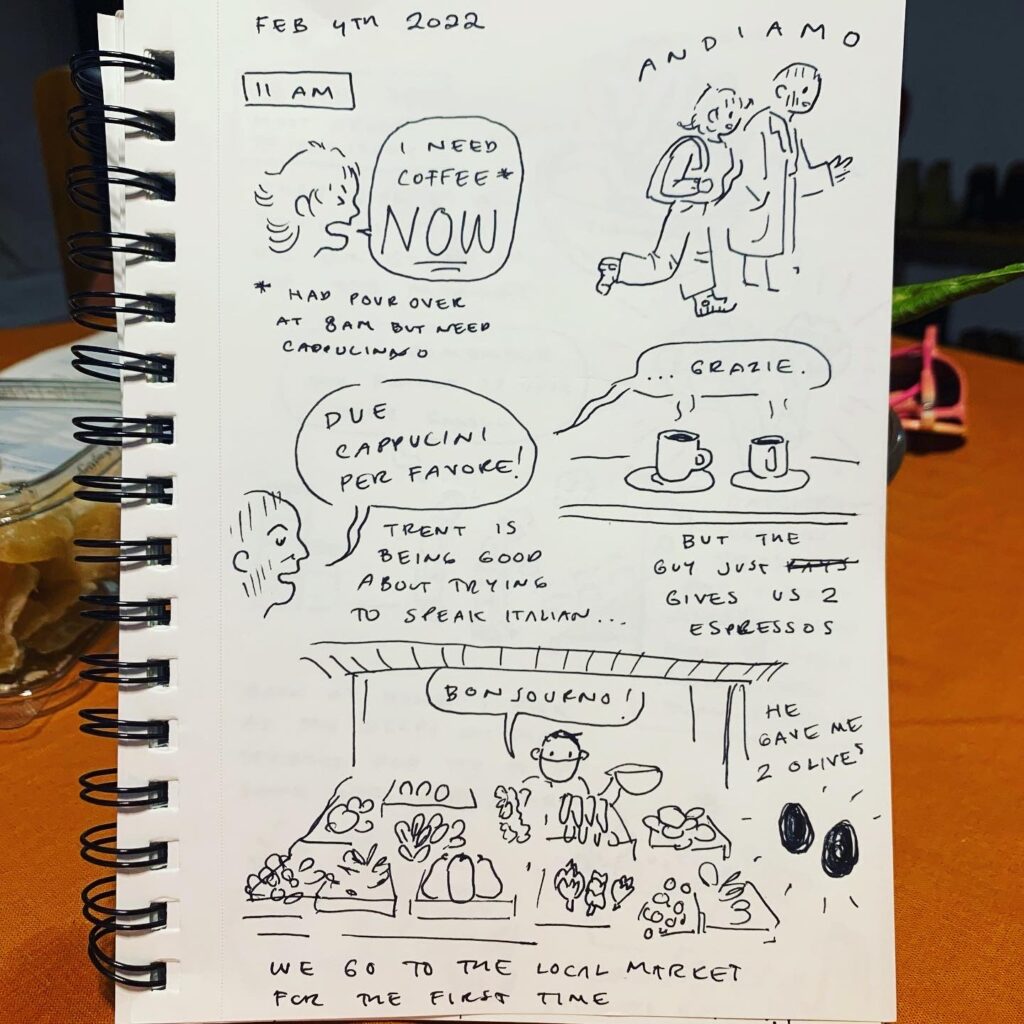 FEB 4TH 2022
11 AM
I NEED
COFFEE*
NOW
* HAD POUR OVER
AT 8AM BUT NEED
CAPPUCINNO
ANDIAMO
DUE
CAPPUCINI
PER FAVORE!
TRENT IS
BEING GOOD
ABOUT TRYING
TO SPEAK ITALIAN...
... GRAZIE.
BUT THE
GUY JUST
GIVES US 2
ESPRESSOS
BONJOURNO!
HE
GAVE ME
2 OLIVES
3
WE GO TO THE LOCAL MARKET
FOR THE FIRST TIME